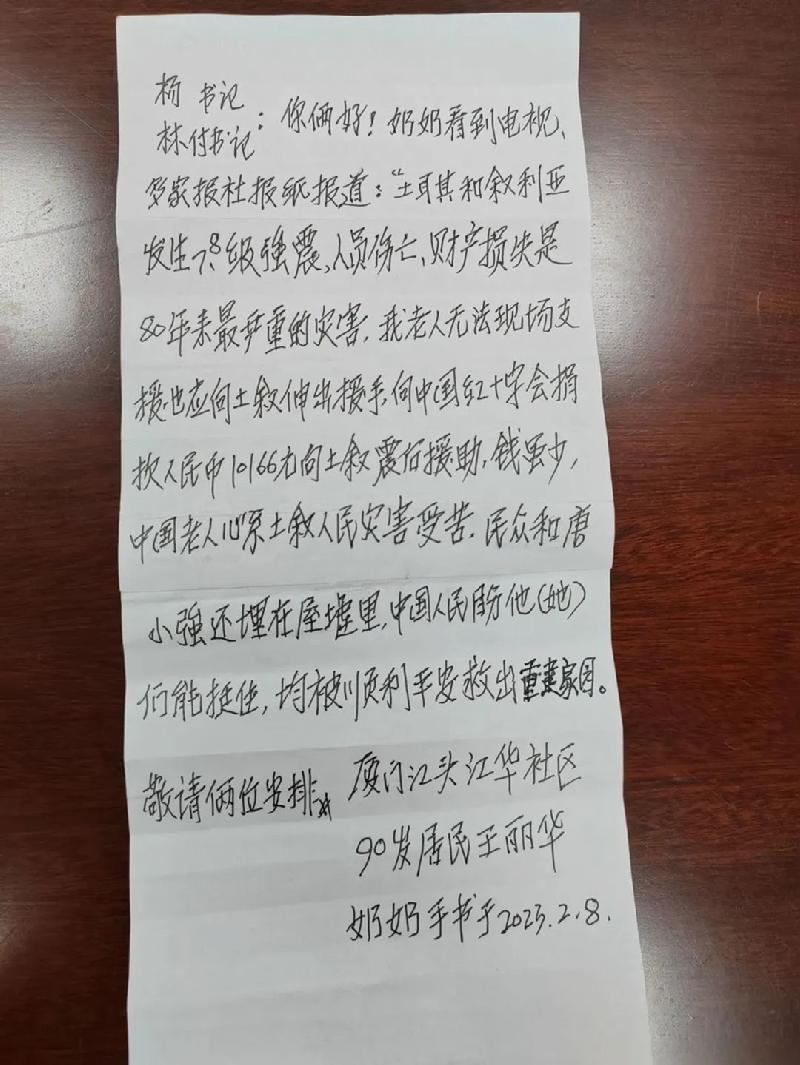 杨 书记
林付书记：你俩好！奶奶看到电视、
多家报社报纸报道：“土耳其和叙利亚
发生7.8级强震，人员伤亡、财产损失是
80年来最严重的灾害。我老人无法现场支
援也应向土叙伸出援手，向中国红十字会捐
款人民币10166元向土叙震仃援助。钱虽少，
中国老人心系土叙人民灾害受苦。民众和唐
小强还埋在屋墟里，中国人民盼他(她)
们能挺住，均被顺利平安救出重建家园。
敬请俩位安排。
厦门江头江华社区
90岁居民王丽华
奶奶手书于2023.2.8.